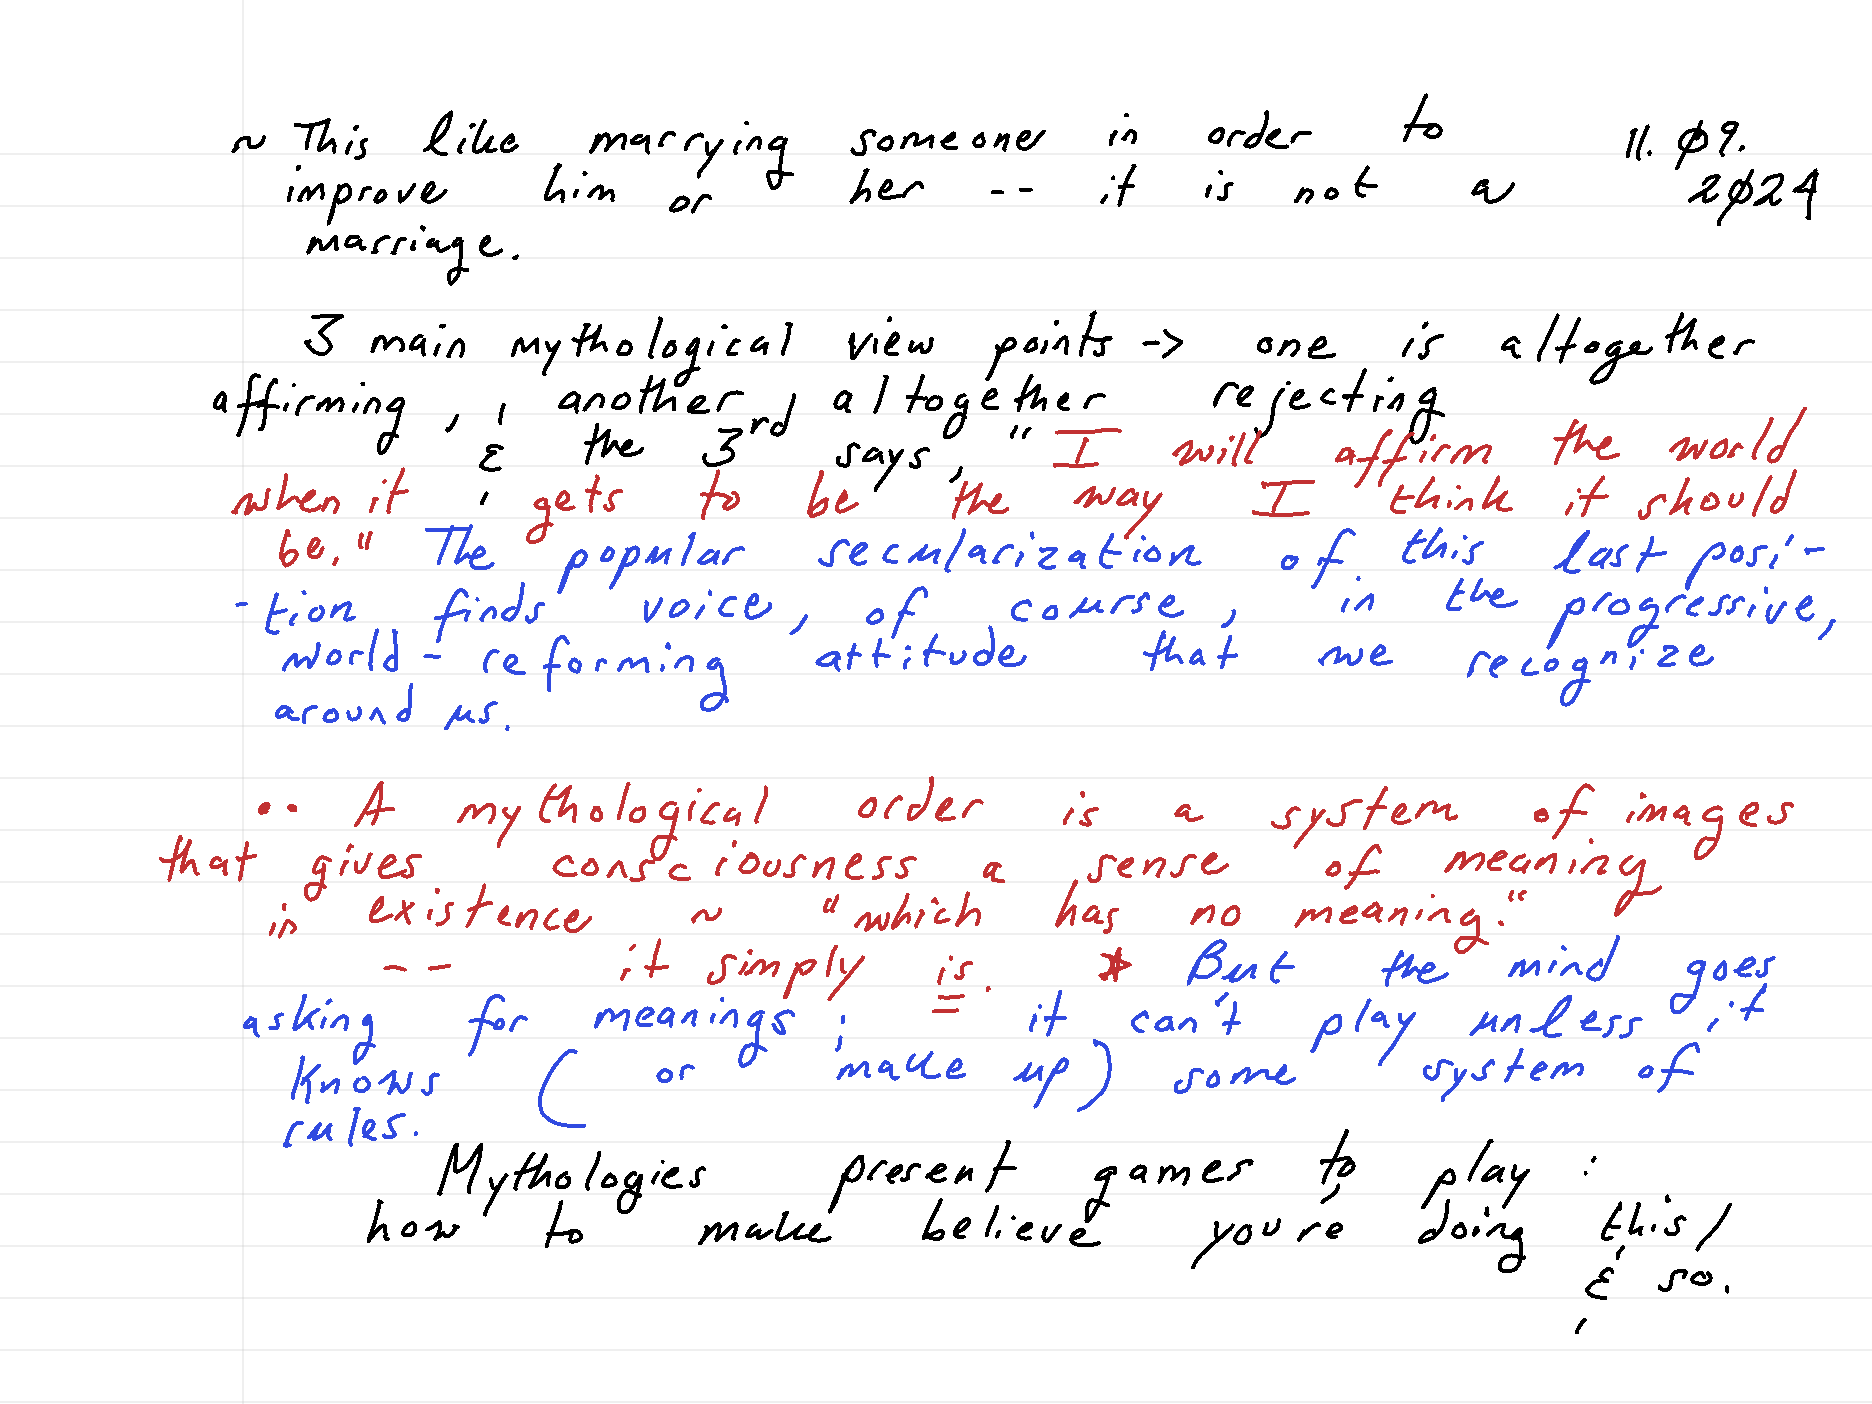 ~ This like marrying someone in order to 11. Ø9.
improve him or her -- it is not a 2Ø24
marriage.
3 main mythological view points -> one is altogether
affirming, another, altogether rejecting
& the 3rd says, "I will affirm the world
when it gets to be the way I think it should
be." The popular secularization of this last posi-
-tion finds voice, of course, in the progressive,
world-reforming attitude that we recognize
around us.
•• A mythological order is a system of images
that gives consciousness a sense of meaning
in existence ~ "which has no meaning."
-- it simply is. * But the mind goes
asking for meanings; it can't play unless it
knows (or make up) some system of
rules.
Mythologies present games to play:
how to make believe you're doing this/
& so.